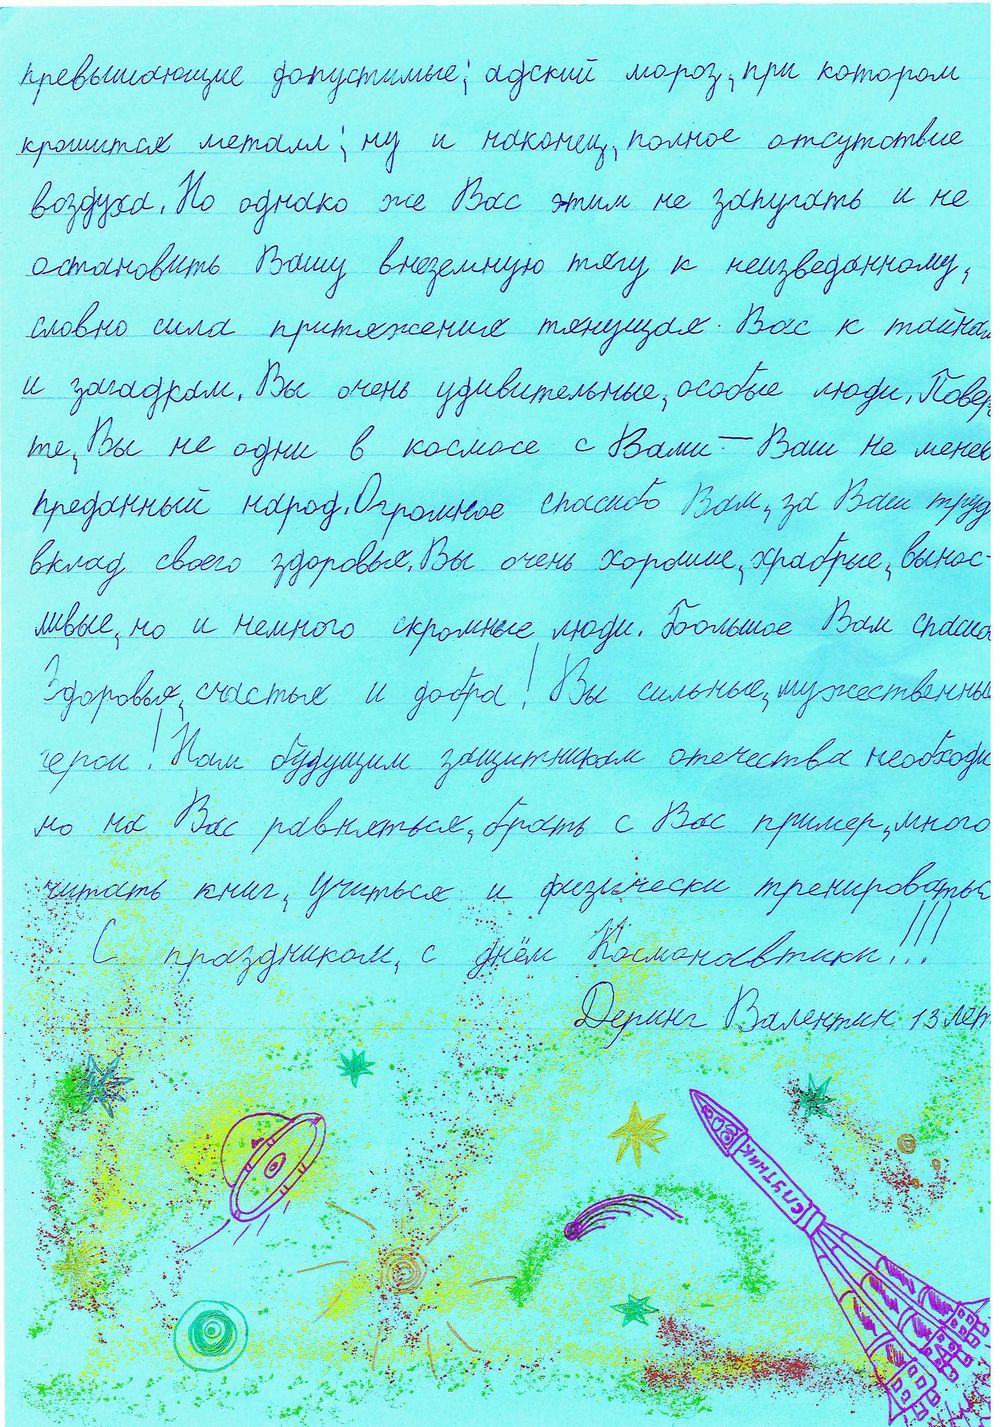 превышающие допустимые; адский мороз, при котором
крошится металл; ну и наконец, полное отсутствие
воздуха. Но однако же Вас этим не запугать и не
остановить Вашу внеземную тягу к неизведанному,
словно сила притяжения тянущая Вас к тайнам
и загадкам. Вы очень удивительные, особые люди. Повер-
те, Вы не одни в космосе с Вами — Ваш не менее
преданный народ. Огромное спасибо Вам, за Ваш труд
вклад своего здоровья. Вы очень хорошие, храбрые, вынос-
ливые, но и немного скромные люди. Большое Вам спасибо
Здоровья, счастья и добра! Вы сильные, мужественные
герои! Нам будущим защитникам отечества необходи
мо на Вас равняться, брать с Вас пример, много
читать книг, учиться и физически тренироваться
С праздником, с днём Космонавтики!!!
Деринг Валентин 13 лет
СПУТНИК